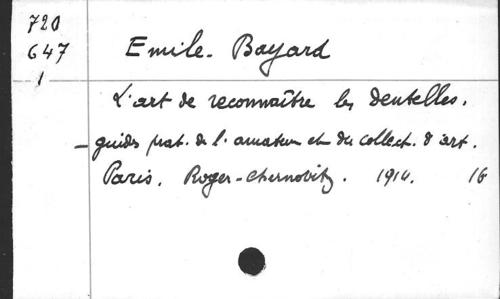 720
647
1
Emile. Bayard
L'art de reconnaître les dentelles.
- guides prat. de l'amateur et du collect. d'art.
Paris. Roger-Chernovitz. 1914. 16